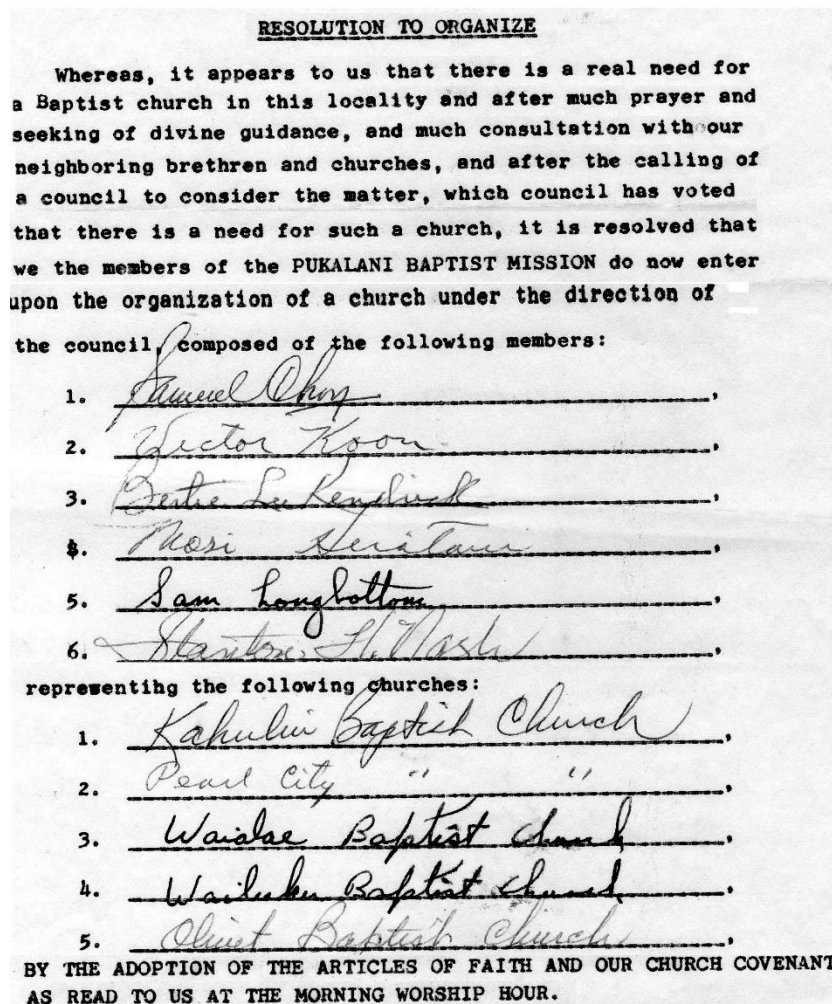 RESOLUTION TO ORGANIZE
Whereas, it appears to us that there is a real need for
a Baptist church in this locality and after much prayer and
seeking of divine guidance, and much consultation with our
neighboring brethren and churches, and after the calling of
a council to consider the matter, which council has voted
that there is a need for such a church, it is resolved that
we the members of the PUKALANI BAPTIST MISSION do now enter
upon the organization of a church under the direction of
the council, composed of the following members:
1. Samuel Choy,
2. Victor Koon,
3. Bertie Lee Kendrick,
$. Mosi,
5. Sam Longbottom,
6. Stanton H. Nash,
representihg the following churches:
1. Kahului Baptist Church,
2. Pearl City " ",
3. Waialae Baptist Church,
4. Wailuku Baptist Church,
5. Olivet Baptist Church,
BY THE ADOPTION OF THE ARTICLES OF FAITH AND OUR CHURCH COVENANT
AS READ TO US AT THE MORNING WORSHIP HOUR.